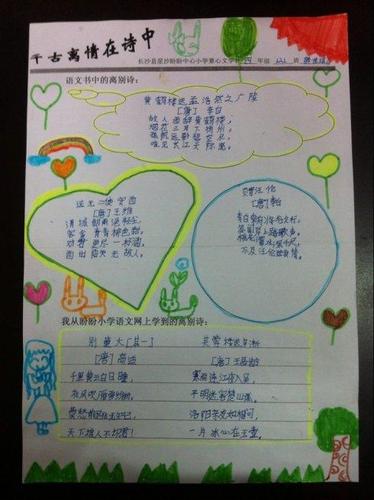 千古离情在诗中
长沙县星沙盼盼中心小学童心文学社 年级 班
语文书中的离别诗：
黄鹤楼送孟浩然之广陵
[唐] 李白
故人西辞黄鹤楼，
烟花三月下扬州，
孤帆远影
唯见长江天际流。
送元二使安西
[唐] 王维
渭城朝雨浥轻尘，
客舍青青柳色新，
劝君更尽一杯酒，
西出阳关无故人。
赠汪伦
[唐] 李白
李白乘舟将欲行，
忽闻岸上踏歌声，
桃花潭水深千尺，
不及汪伦送我情。
我从盼盼小学语文网上学到的离别诗：
别董大 [其一]
[唐] 高适
千里黄云白日曛，
北风吹雁雪纷纷，
莫愁前路无知己，
天下谁人不识君！
芙蓉楼送辛渐
[唐] 王昌龄
寒雨连江夜入吴，
平明送客楚山孤，
洛阳亲友如相问，
一片冰心在玉壶。